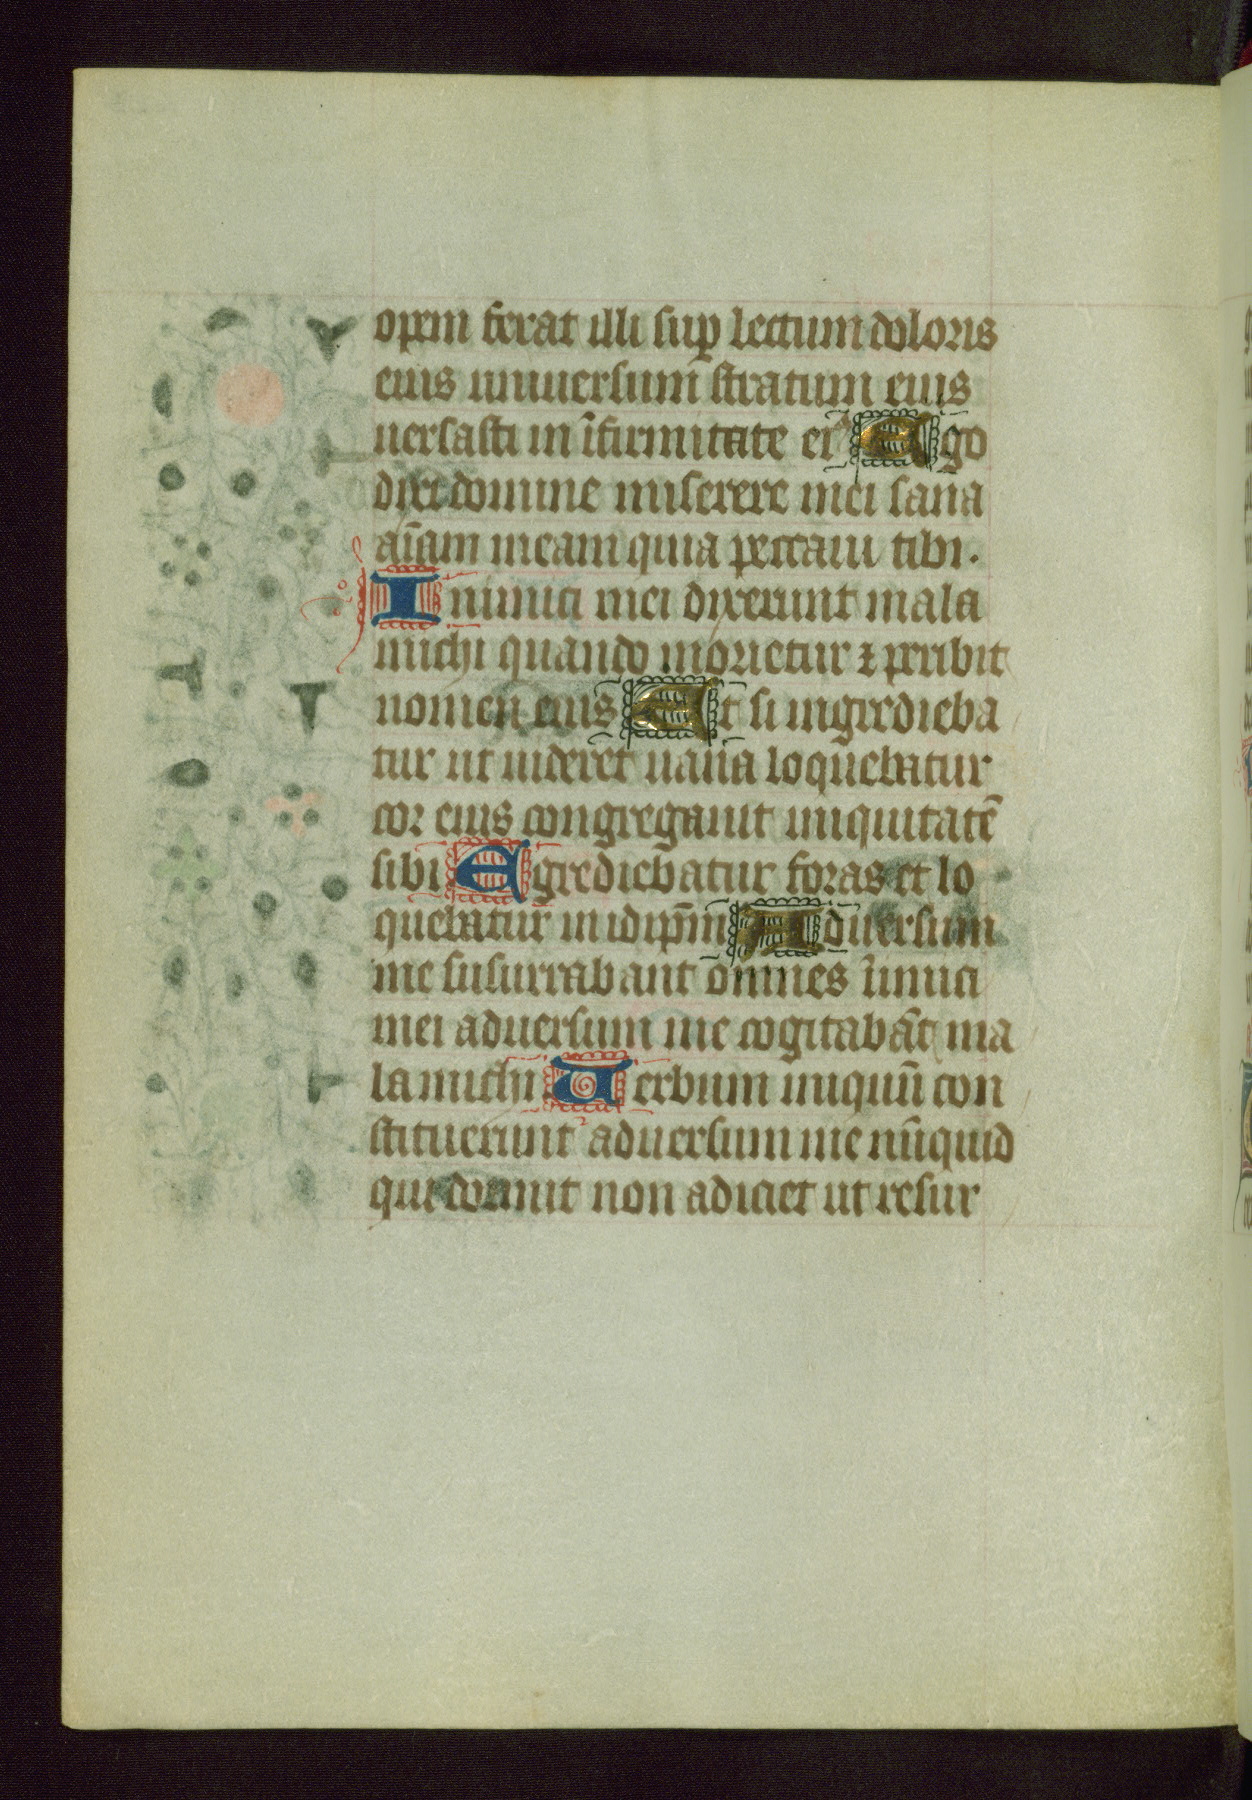 opem ferat illi sup lectum doloris
eius uniuersum stratum eius
uersasti in ĩfirmitate ei⁹ Ego
dixi domine miserere mei sana
aīam meam quia peccaui tibi.
Inimici mei dixerunt mala
michi quando morietur ⁊ peribit
nomen eius Et si ingredieba
tur ut uideret uana loquebatur
cor eius congregauit iniquitatē
sibi Egrediebatur foras et lo
quebatur in idip̄m Aduersum
me susurrabant omnes ĩimici
mei aduersum me cogitabāt ma
la michi Uerbum iniquū con
stituerunt aduersum me nūquid
qui dormit non adiciet ut resur